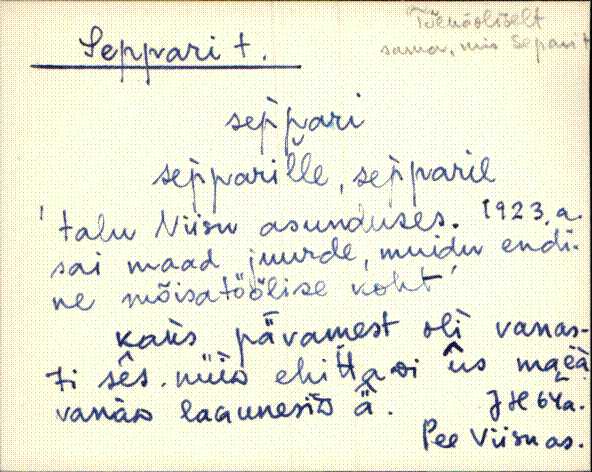 Tõenäoliselt
sama, mis Separi t
Seppari t.
seppari
sepparille, sepparil
'talu Viisu asunduses. 1923. a.
sai maad juurde, muidu endi-
ne mõisatöölise koht'
kaks pävamest oli vanas-
ti sês. nüis ehittasi ûs maeä
vanas lagunesis ä.
JH 64a.
Pee Viisu as.